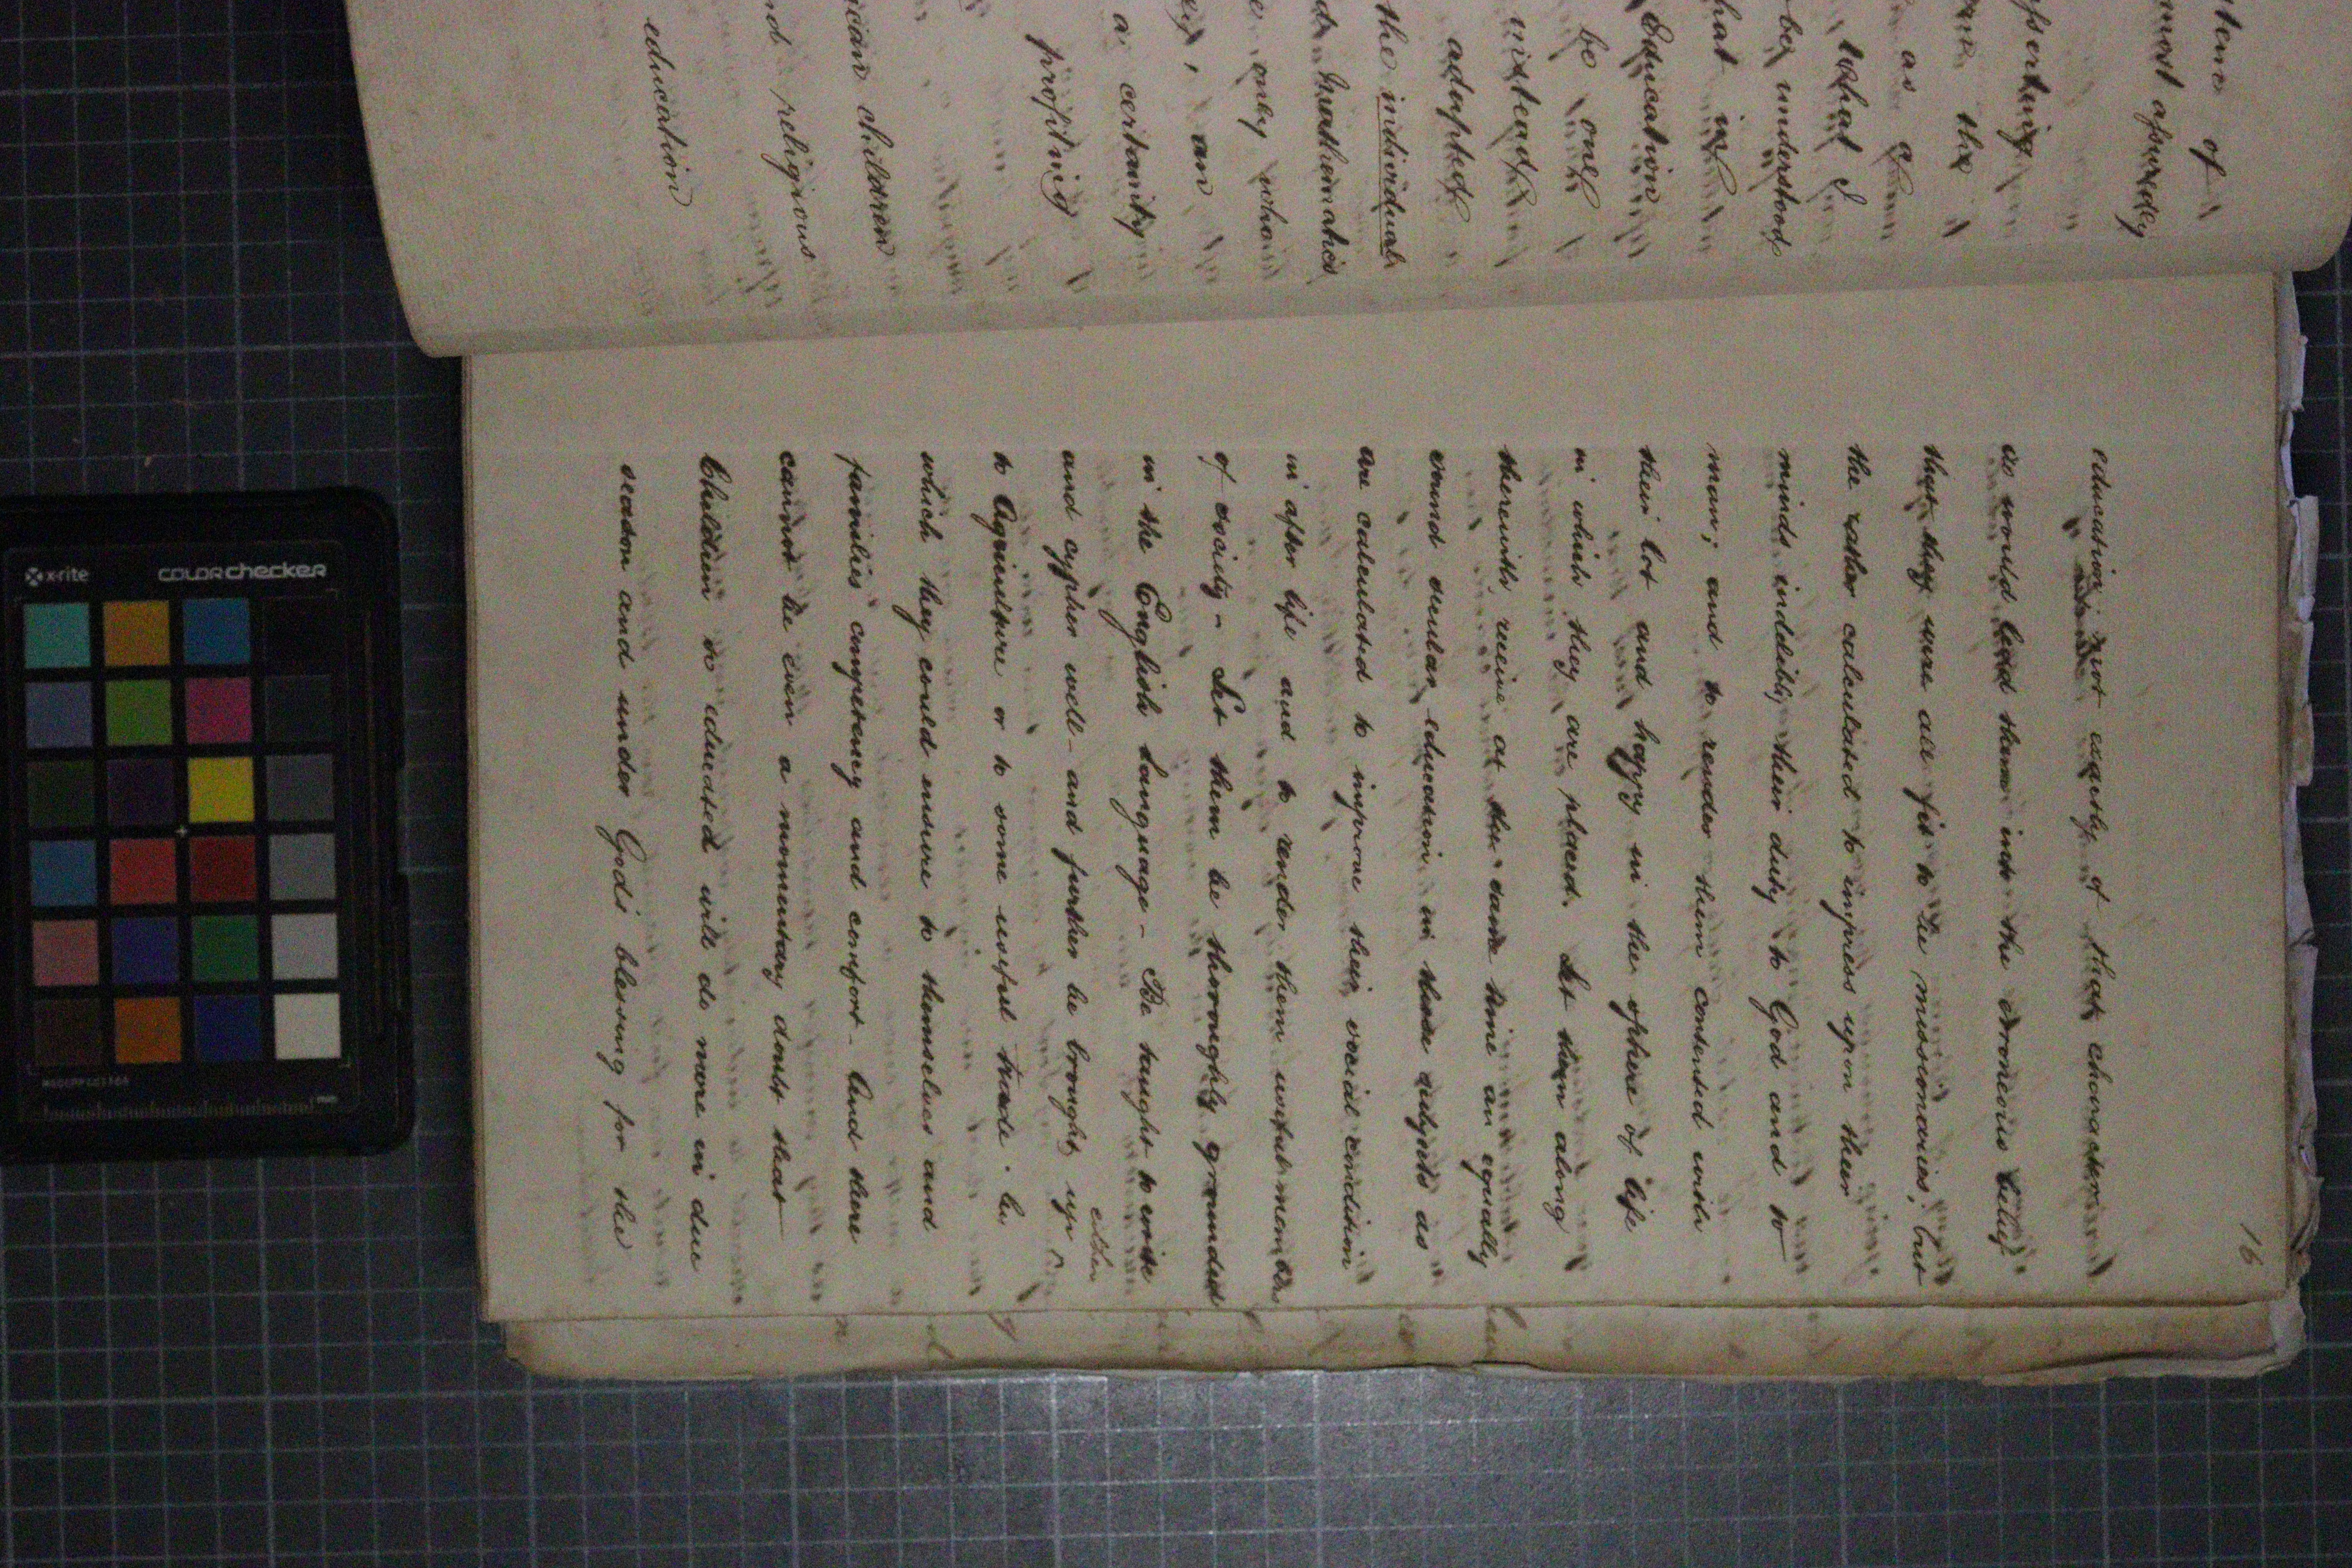 stem of
most assuredly
sserting
the
as a
what I
be understood
hat is
Education
be one
instead
adapted
the individual
Mathematics
e only who
, an
a certainty
profiting
ican children
nd religious
education
16
education; not exactly of that character
as would lead them into the erroneous belief
that they were all fit to be missionaries, but
the rather calculated to impress upon their
minds indelibly their duty to God and to
man; and to render them contented with
their lot and happy in the sphere of life
in which they are placed. Let them along
therewith receive at the same time an equally
sound secular education in such subjects as
are calculated to improve their social condition
in after life and to render them useful members
of society - Let them be thoroughly grounded
in the English Language - Be taught to write
and cypher well - and further be brought up
either
to Agriculture or to some useful trade . by
which they could ensure to themselves and
families competency and comfort - And there
cannot be even a momentary doubt that
Children so educated will do more in due
season and under God's blessing for the
x-rite
colorchecker
mm